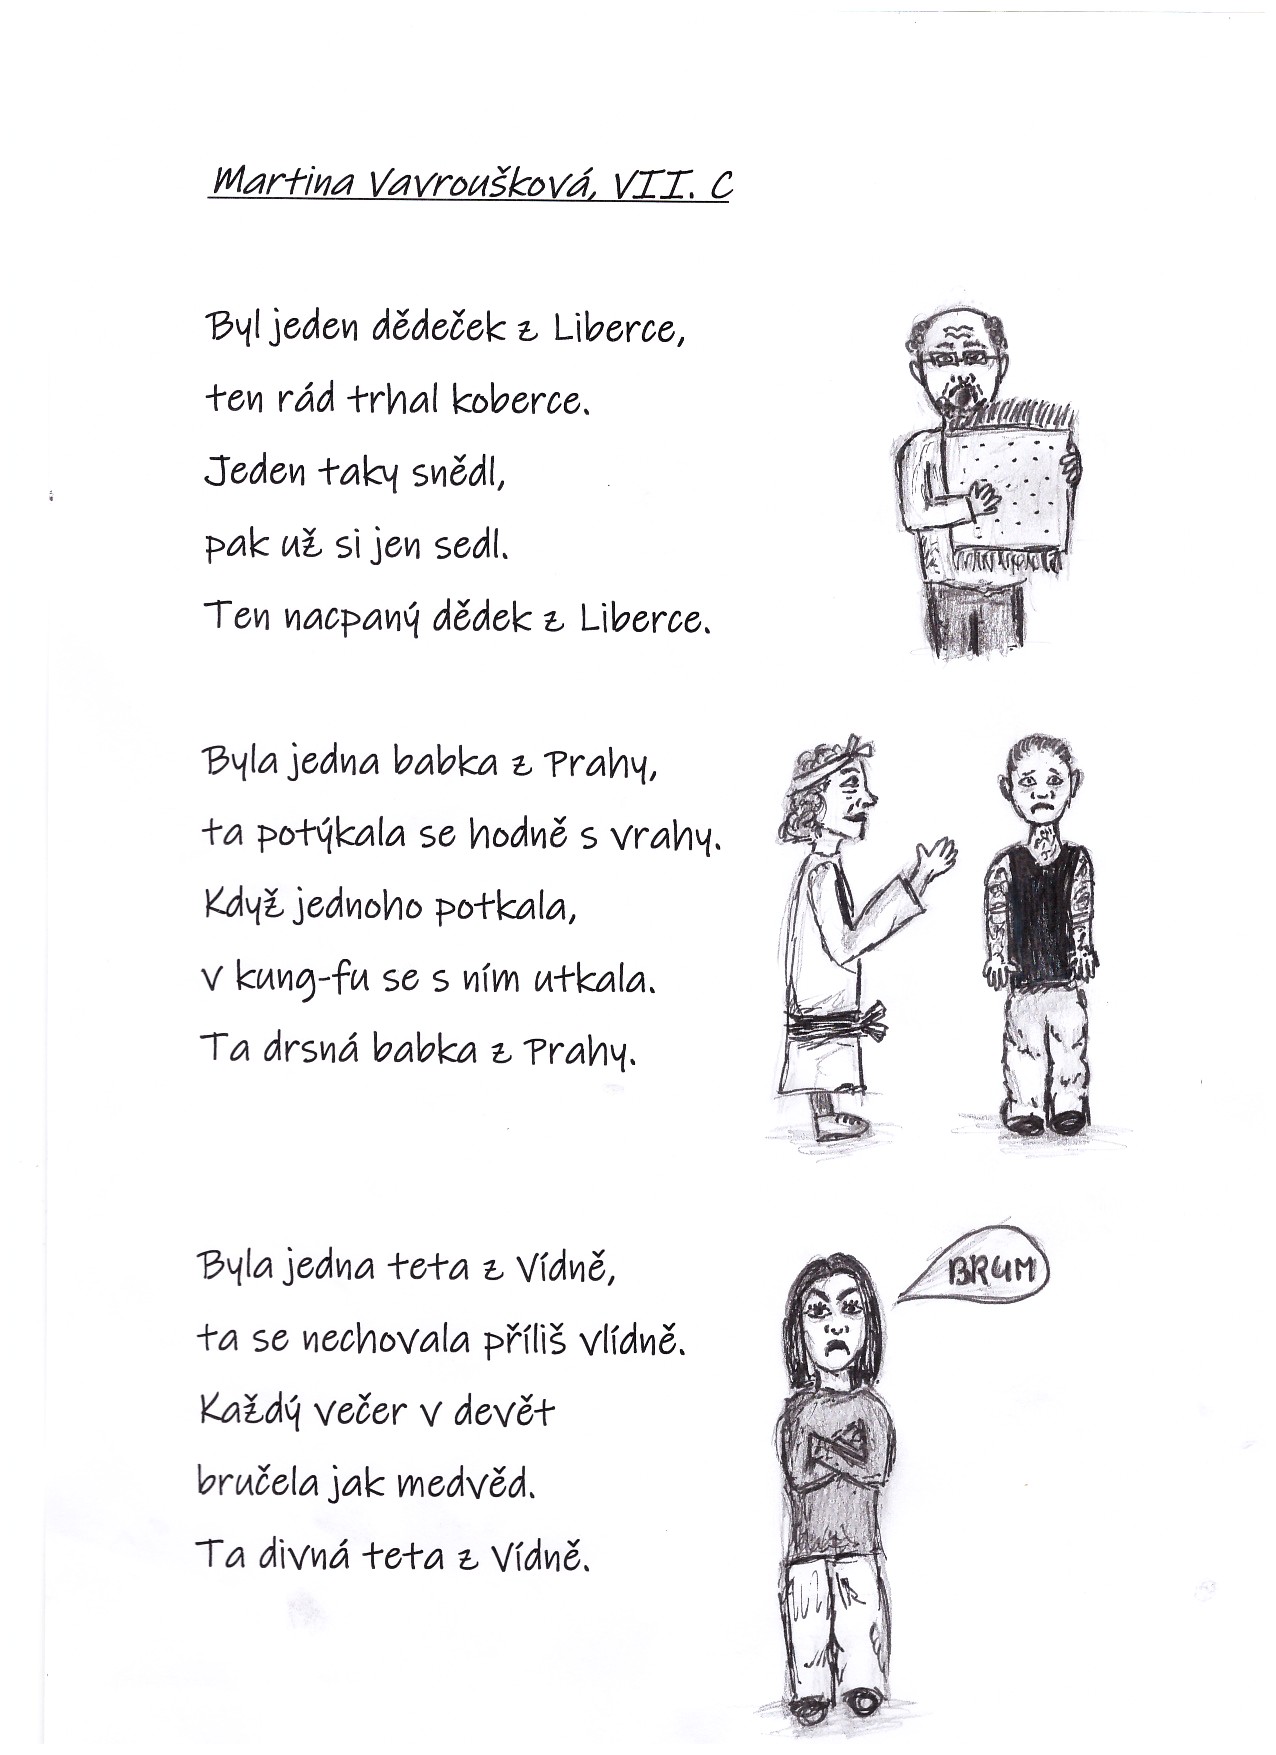 Martina Vavroušková, VII. C
Byl jeden dědeček z Liberce,
ten rád trhal koberce.
Jeden taky snědl,
pak už si jen sedl.
Ten nacpaný dědek z Liberce.
Byla jedna babka z Prahy,
ta potýkala se hodně s vrahy.
Když jednoho potkala,
v kung-fu se s ním utkala.
Ta drsná babka z Prahy.
BRUM
Byla jedna teta z Vídně,
ta se nechovala příliš vlídně.
Každý večer v devět
bručela jak medvěd.
Ta divná teta z Vídně.